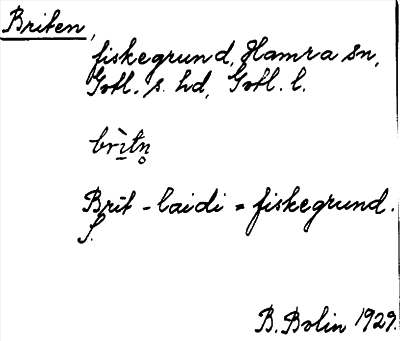 Briten,
fiskegrund, Hamra sn,
Gotl. s. hd, Gotl. l.
brìtn̥
Brit-laidi = fiskegrund.
S.
B. Bolin 1929.